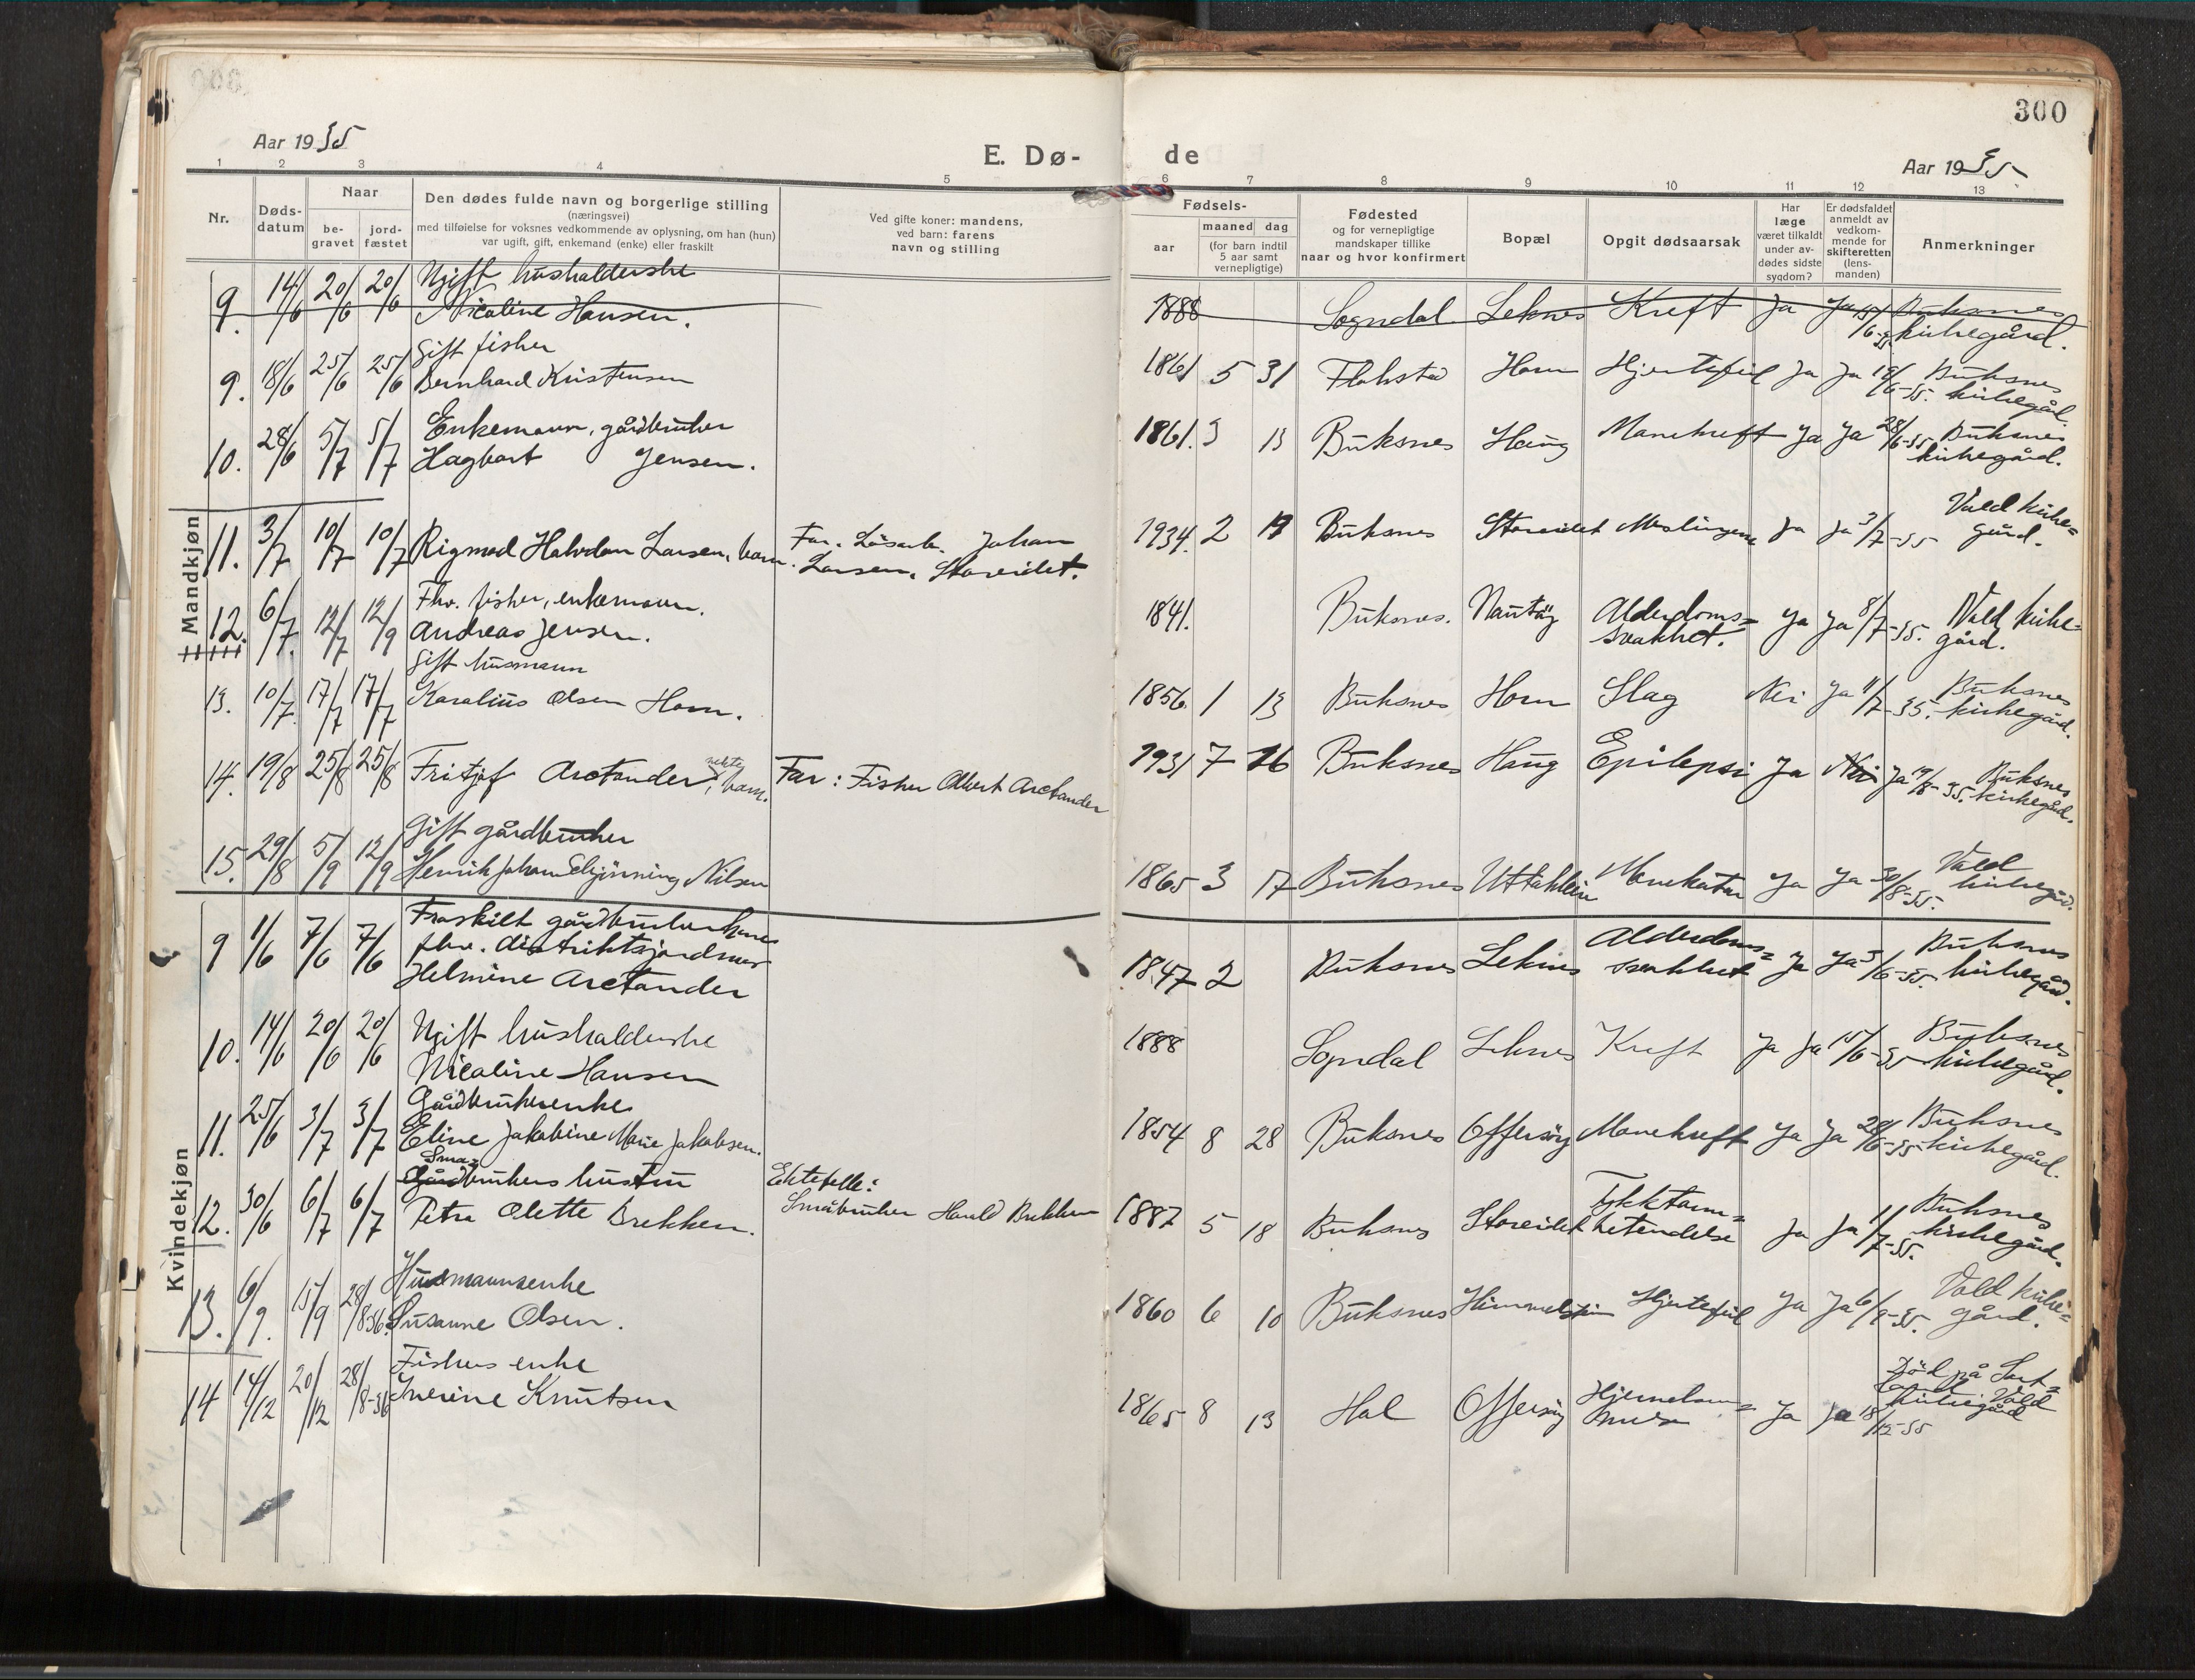 300
Aar 1935
E. Dø-
de
Aar 1935.
1 2 3 4 5 6 7 8 9 10 11 12 13
Nr.
Døds-
datum
Naar
be-
gravet
jord-
fæstet
Den dødes fulde navn og borgerlige stilling
(næringsvei)
med tilføielse for voksnes vedkommende av oplysning, om han (hun)
var ugift, gift, enkemand (enke) eller fraskilt
Ved gifte koner: mandens,
ved barn: farens
navn og stilling
Fødsels-
aar
maaned dag
(for barn indtil
5 aar samt
vernepligtige)
Fødested
og for vernepligtige
mandskaper tillike
naar og hvor konfirmert
Bopæl
Opgit dødsaarsak
Har
læge
været tilkaldt
under av-
dødes sidste
sygdom?
Er dødsfaldet
anmeldt av
vedkom-
mende for
skifteretten
(lens-
manden)
Anmerkninger
Mandkjøn
Ugift husholderske
9. 14/6 20/6 20/6 Nicoline Hansen. 1888 Sogndal Leknes Kreft Ja Ja 15/6-35 Buksnes
kirkegård.
Gift fisker
9. 18/6 25/6 25/6 Bernhard Kristensen 1861 5 31 Flakstad Horn Hjertefeil Ja Ja 19/6-35. Buksnes
kirkegård.
Enkemann, gårdbruker
10. 28/6 5/7 5/7 Hagbart Jensen. 1861. 3 13 Buksnes Haug Mavekreft Ja Ja 28/6-35 Buksnes
kirkegård.
11. 3/7 10/7 10/7 Rigmod Halvdan Larsen, barn. Far. Løsarb. Johan
Larsen, Storeidet. 1934. 2 19 Buksnes Storeidet Meslingene Ja Ja 3/7-35 Vald kirke=
gård.
Fhv. fisker, enkemann.
12. 6/7. 12/7 12/9 Andreas Jensen. 1841. Buksnes. Nautøy Alderdoms=
svakhet. Ja Ja 8/7-35. Vald kirke=
gård.
Gift husmann
13. 10/7 17/7 17/7 Karolius Olsen Horn. 1856. 1 13 Buksnes Horn Slag Nei Ja 11/7-35. Buksnes
kirkegård.
14. 19/8 25/8 25/8 Fritjof Arctander, ekte barn. Far: Fisker Albert Arctander 1931 7 26 Buksnes Haug Epilepsi Ja Nei Ja 19/8-35. Buksnes
kirkegård.
Gift gårdbruker
15. 29/8 5/9 12/9 Henrik Johan Schjønning Nilsen 1865 3 17 Buksnes Uttakleiv Mavekatar Ja Ja 30/8-35. Vald
kirkegård.
Kvindekjøn
Fraskilt gårdbrukerkone
fhv. distriktsjordmor
9 1/6 7/6 7/6 Helmine Arctander 1847 2 Buksnes Leknes Alderdoms=
svakhet Ja Ja 3/6-35. Buksnes
kirkegård.
Ugift husholderske
10. 14/6 20/6 20/6 Nicoline Hansen 1888 Sogndal Leknes Kreft Ja Ja 15/6-35 Buksnes
kirkegård.
Gårdbrukerenke
11. 25/6 3/7 3/7 Eline Jakobine Marie Jakobsen. 1854 8 28 Buksnes Offersøy Mavekreft Ja Ja 28/6-35 Buksnes
kirkegård.
Små=
Gårdbrukers hustru
12. 30/6 6/7 6/7 Petra Olette Brekken. Ektefelle:
Småbruker Harald Brekken 1887 5 18 Buksnes Storeidet Tykktarm=
betendelse Ja Ja 1/7-35. Buksnes
kirkegård.
Husmannsenke
13. 6/9. 15/9 28/8 36. Susanne Olsen. 1860 6 10 Buksnes Himmelstein Hjertefeil Ja Ja 6/9-35. Vald kirke=
gård.
Fiskers enke
14 14/12 20/12 28/8-36 Inerine Knutsen 1865 8 13 Hol Offersøy Ja Ja 18/12-35 Død på
Vald
kirkegård